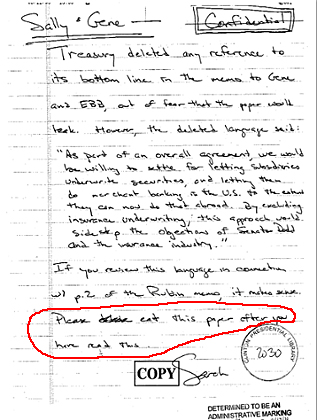 Sally & Gene
Confidential
Treasury deleted any reference to
its bottom line in the memo to Gene
and EBB, out of fear that the paper would
leak. However, the deleted language said:
"As part of an overall agreement, we would
be willing to settle for letting subsidiaries
underwrite securities, and letting them
do merchant banking in the U.S. to the extent
they can now do that abroad. By excluding
insurance underwriting, this approach would
sidestep the objections of Senator Dodd
and the insurance industry."
If you review this language in connection
w/ p.2 of the Rubin memo, it makes sense.
Please eat this paper after you
have read this.
COPY
Sarah
CLINTON PRESIDENTIAL LIBRARY
2030
DETERMINED TO BE AN
ADMINISTRATIVE MARKING